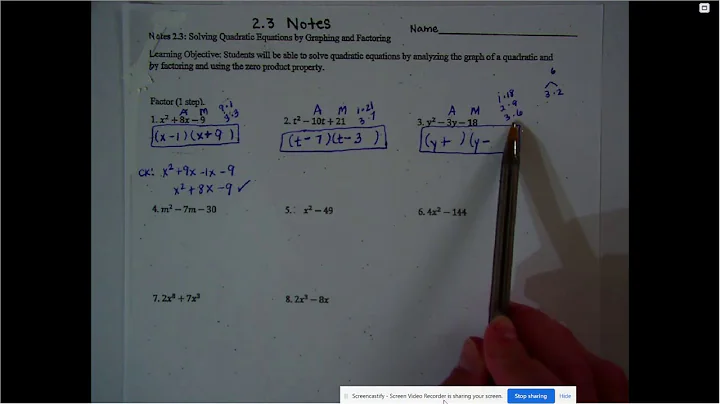 2.3 Notes
Name
Notes 2.3: Solving Quadratic Equations by Graphing and Factoring
Learning Objective: Students will be able to solve quadratic equations by analyzing the graph of a quadratic and
by factoring and using the zero product property.
6
3·2
Factor (1 step).
A M 9·1
3·3
1. x² + 8x − 9
(x-1)(x+9)
CK: x²+9x-1x-9
x²+8x-9 ✓
A M 1·21
3·7
2. t² − 10t + 21
(t-7)(t-3)
A M 1·18
2·9
3·6
3. y² − 3y − 18
(y+ )(y-
4. m² − 7m − 30
5. x² − 49
6. 4x² − 144
7. 2x⁸ + 7x³
8. 2x³ − 8x
Screencastify - Screen Video Recorder is sharing your screen.
Stop sharing
Hide